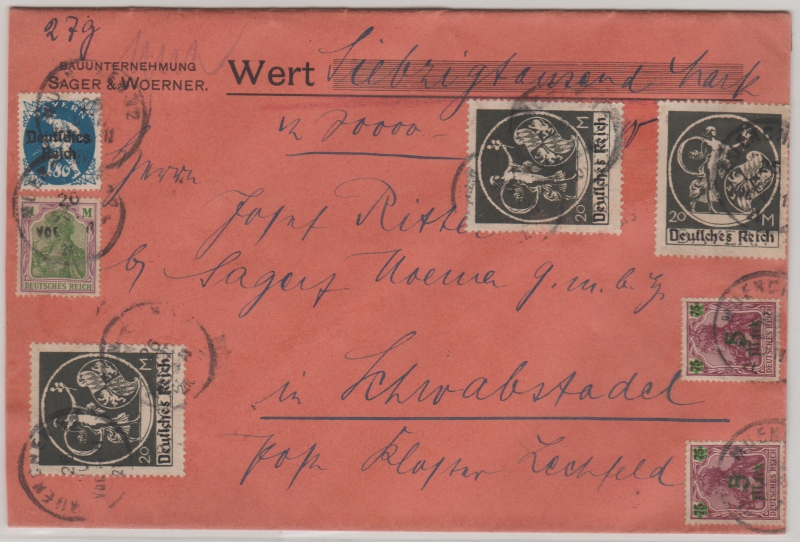 27g
BAUUNTERNEHMUNG
SAGER & WOERNER.
Wert Siebzigtausend Mark
70000
Herrn
Josef Ritter
b/ Sager & Woerner G.m.b.H.
in Schwabstadel
Post Kloster Lechfeld
Deutsches
Reich
80
M
DEUTSCHES REICH
20 M
Deutsches Reich
20 M
Deutsches Reich
20 M
Deutsches Reich
5
Mark
DEUTSCHES REICH
5
Mark
DEUTSCHES REICH